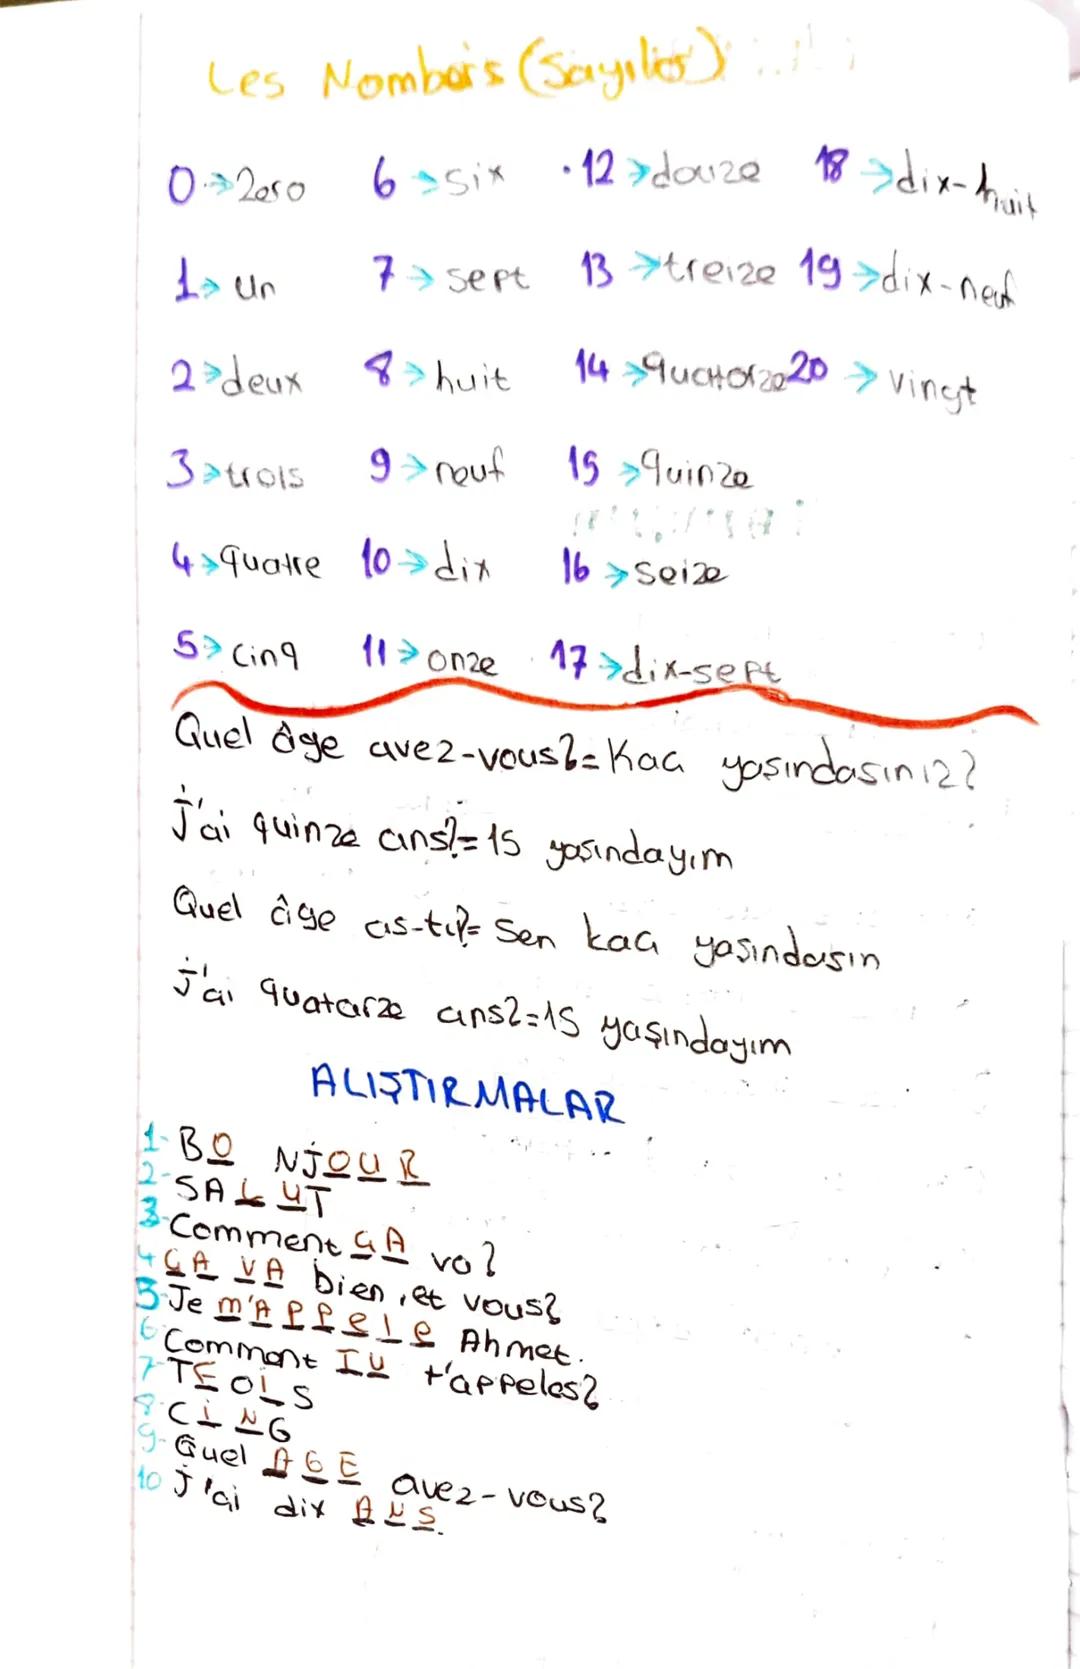 Les Nombors (Sayılar)
0 → zero 6 → six 12 → douze 18 → dix-huit
1 → un 7 → sept 13 → treize 19 → dix-neuf
2 → deux 8 → huit 14 → quatorze 20 → vingt
3 → trois 9 → neuf 15 → quinze
4 → quatre 10 → dix 16 → seize
5 → cinq 11 → onze 17 → dix-sept
Quel âge avez-vous? = Kaç yaşındasınız?
J'ai quinze ans? = 15 yaşındayım
Quel âge as-tu? = Sen kaç yaşındasın
J'ai quatarze ans? = 15 yaşındayım
ALIŞTIRMALAR
1- BO NJOUR
2- SALUT
3- Comment ÇA va?
4 ÇA VA bien, et vous?
5- Je m'APPele Ahmet.
6- Comment TU t'appeles?
7- TEOIS
8- CINQ
9- Quel AGE avez-vous?
10 J'ai dix ANS.